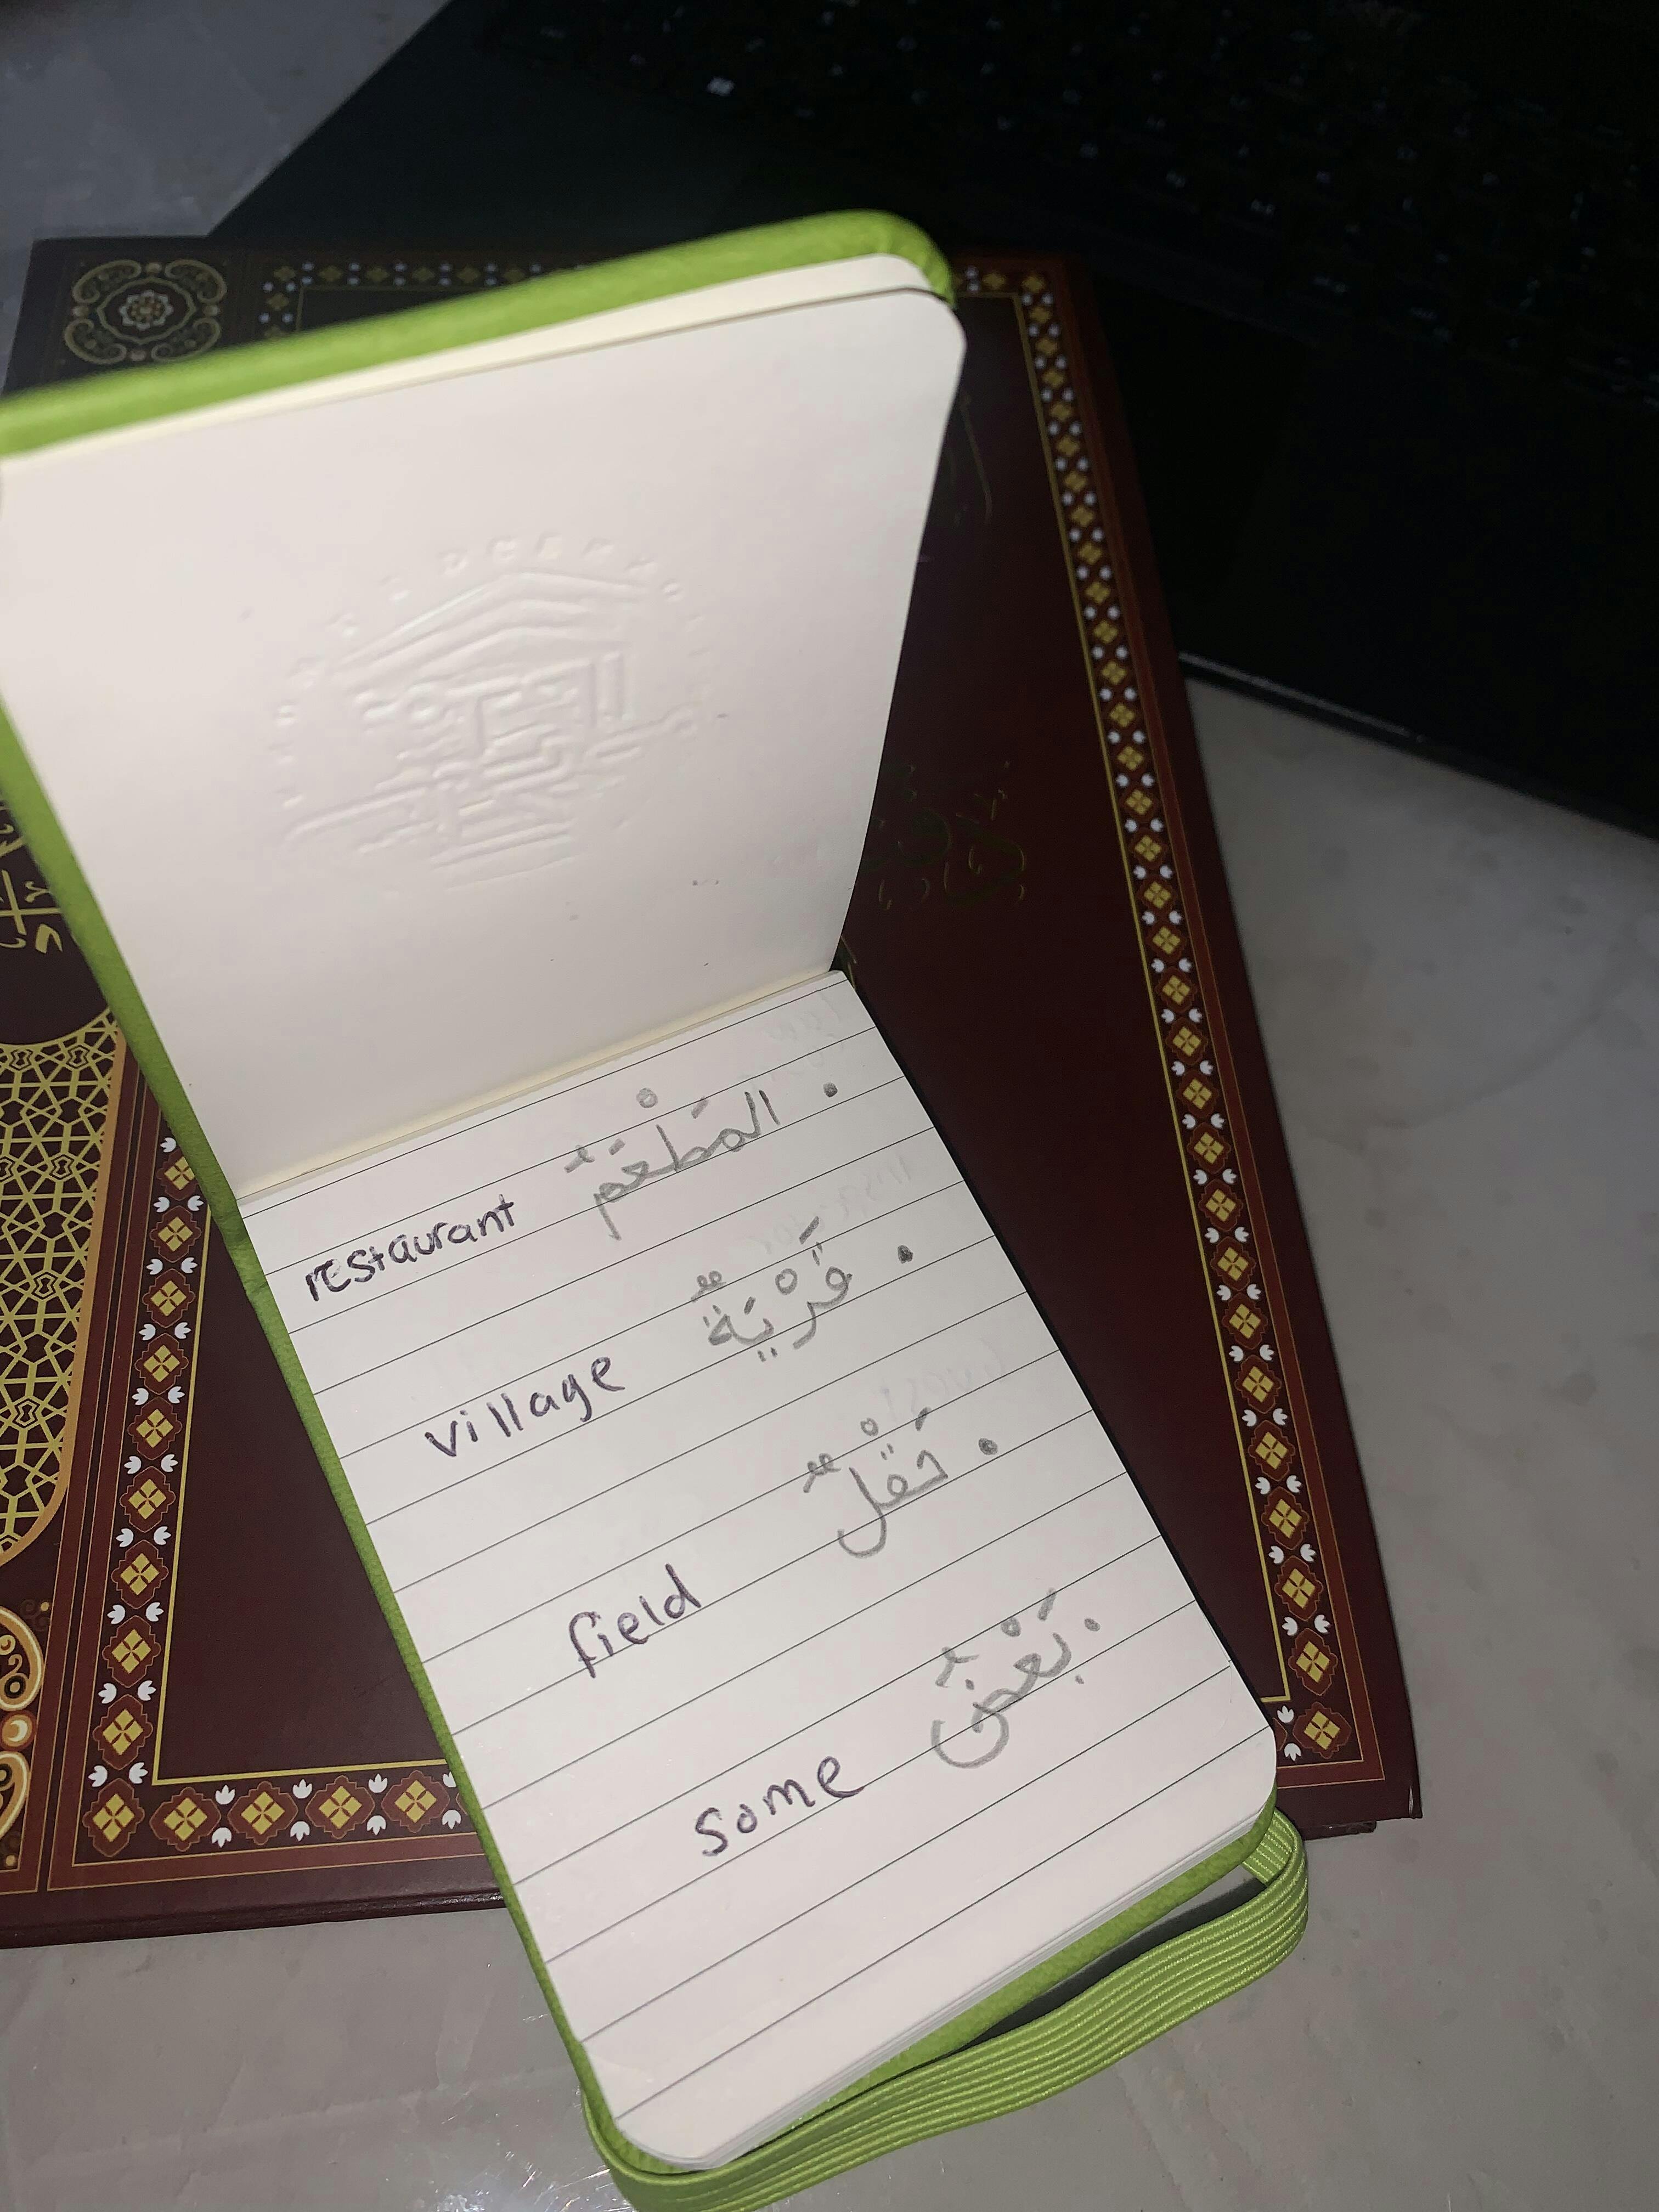 • المَطْعَمُ restaurant
• قَرْيَةٌ village
• حَقْلٌ field
• بَعْضُ some